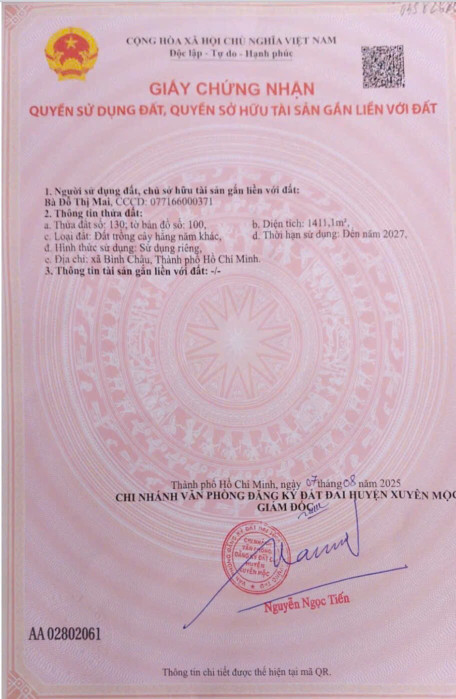 CỘNG HÒA XÃ HỘI CHỦ NGHĨA VIỆT NAM
Độc lập - Tự do - Hạnh phúc
GIẤY CHỨNG NHẬN
QUYỀN SỬ DỤNG ĐẤT, QUYỀN SỞ HỮU TÀI SẢN GẮN LIỀN VỚI ĐẤT
1. Người sử dụng đất, chủ sở hữu tài sản gắn liền với đất:
Bà Đỗ Thị Mai, CCCD: 077166000371
2. Thông tin thửa đất:
a. Thửa đất số: 130; tờ bản đồ số: 100,
b. Diện tích: 1411,1m²,
c. Loại đất: Đất trồng cây hàng năm khác,
d. Thời hạn sử dụng: Đến năm 2027,
đ. Hình thức sử dụng: Sử dụng riêng,
e. Địa chỉ: xã Bình Châu, Thành phố Hồ Chí Minh.
3. Thông tin tài sản gắn liền với đất: -/-
Thành phố Hồ Chí Minh, ngày 07 tháng 08 năm 2025
CHI NHÁNH VĂN PHÒNG ĐĂNG KÝ ĐẤT ĐAI HUYỆN XUYÊN MỘC
GIÁM ĐỐC
CHI NHÁNH
VĂN PHÒNG
ĐĂNG KÝ ĐẤT Đ
HUYỆN
XUYÊN MỘC
Nguyễn Ngọc Tiến
AA 02802061
Thông tin chi tiết được thể hiện tại mã QR.